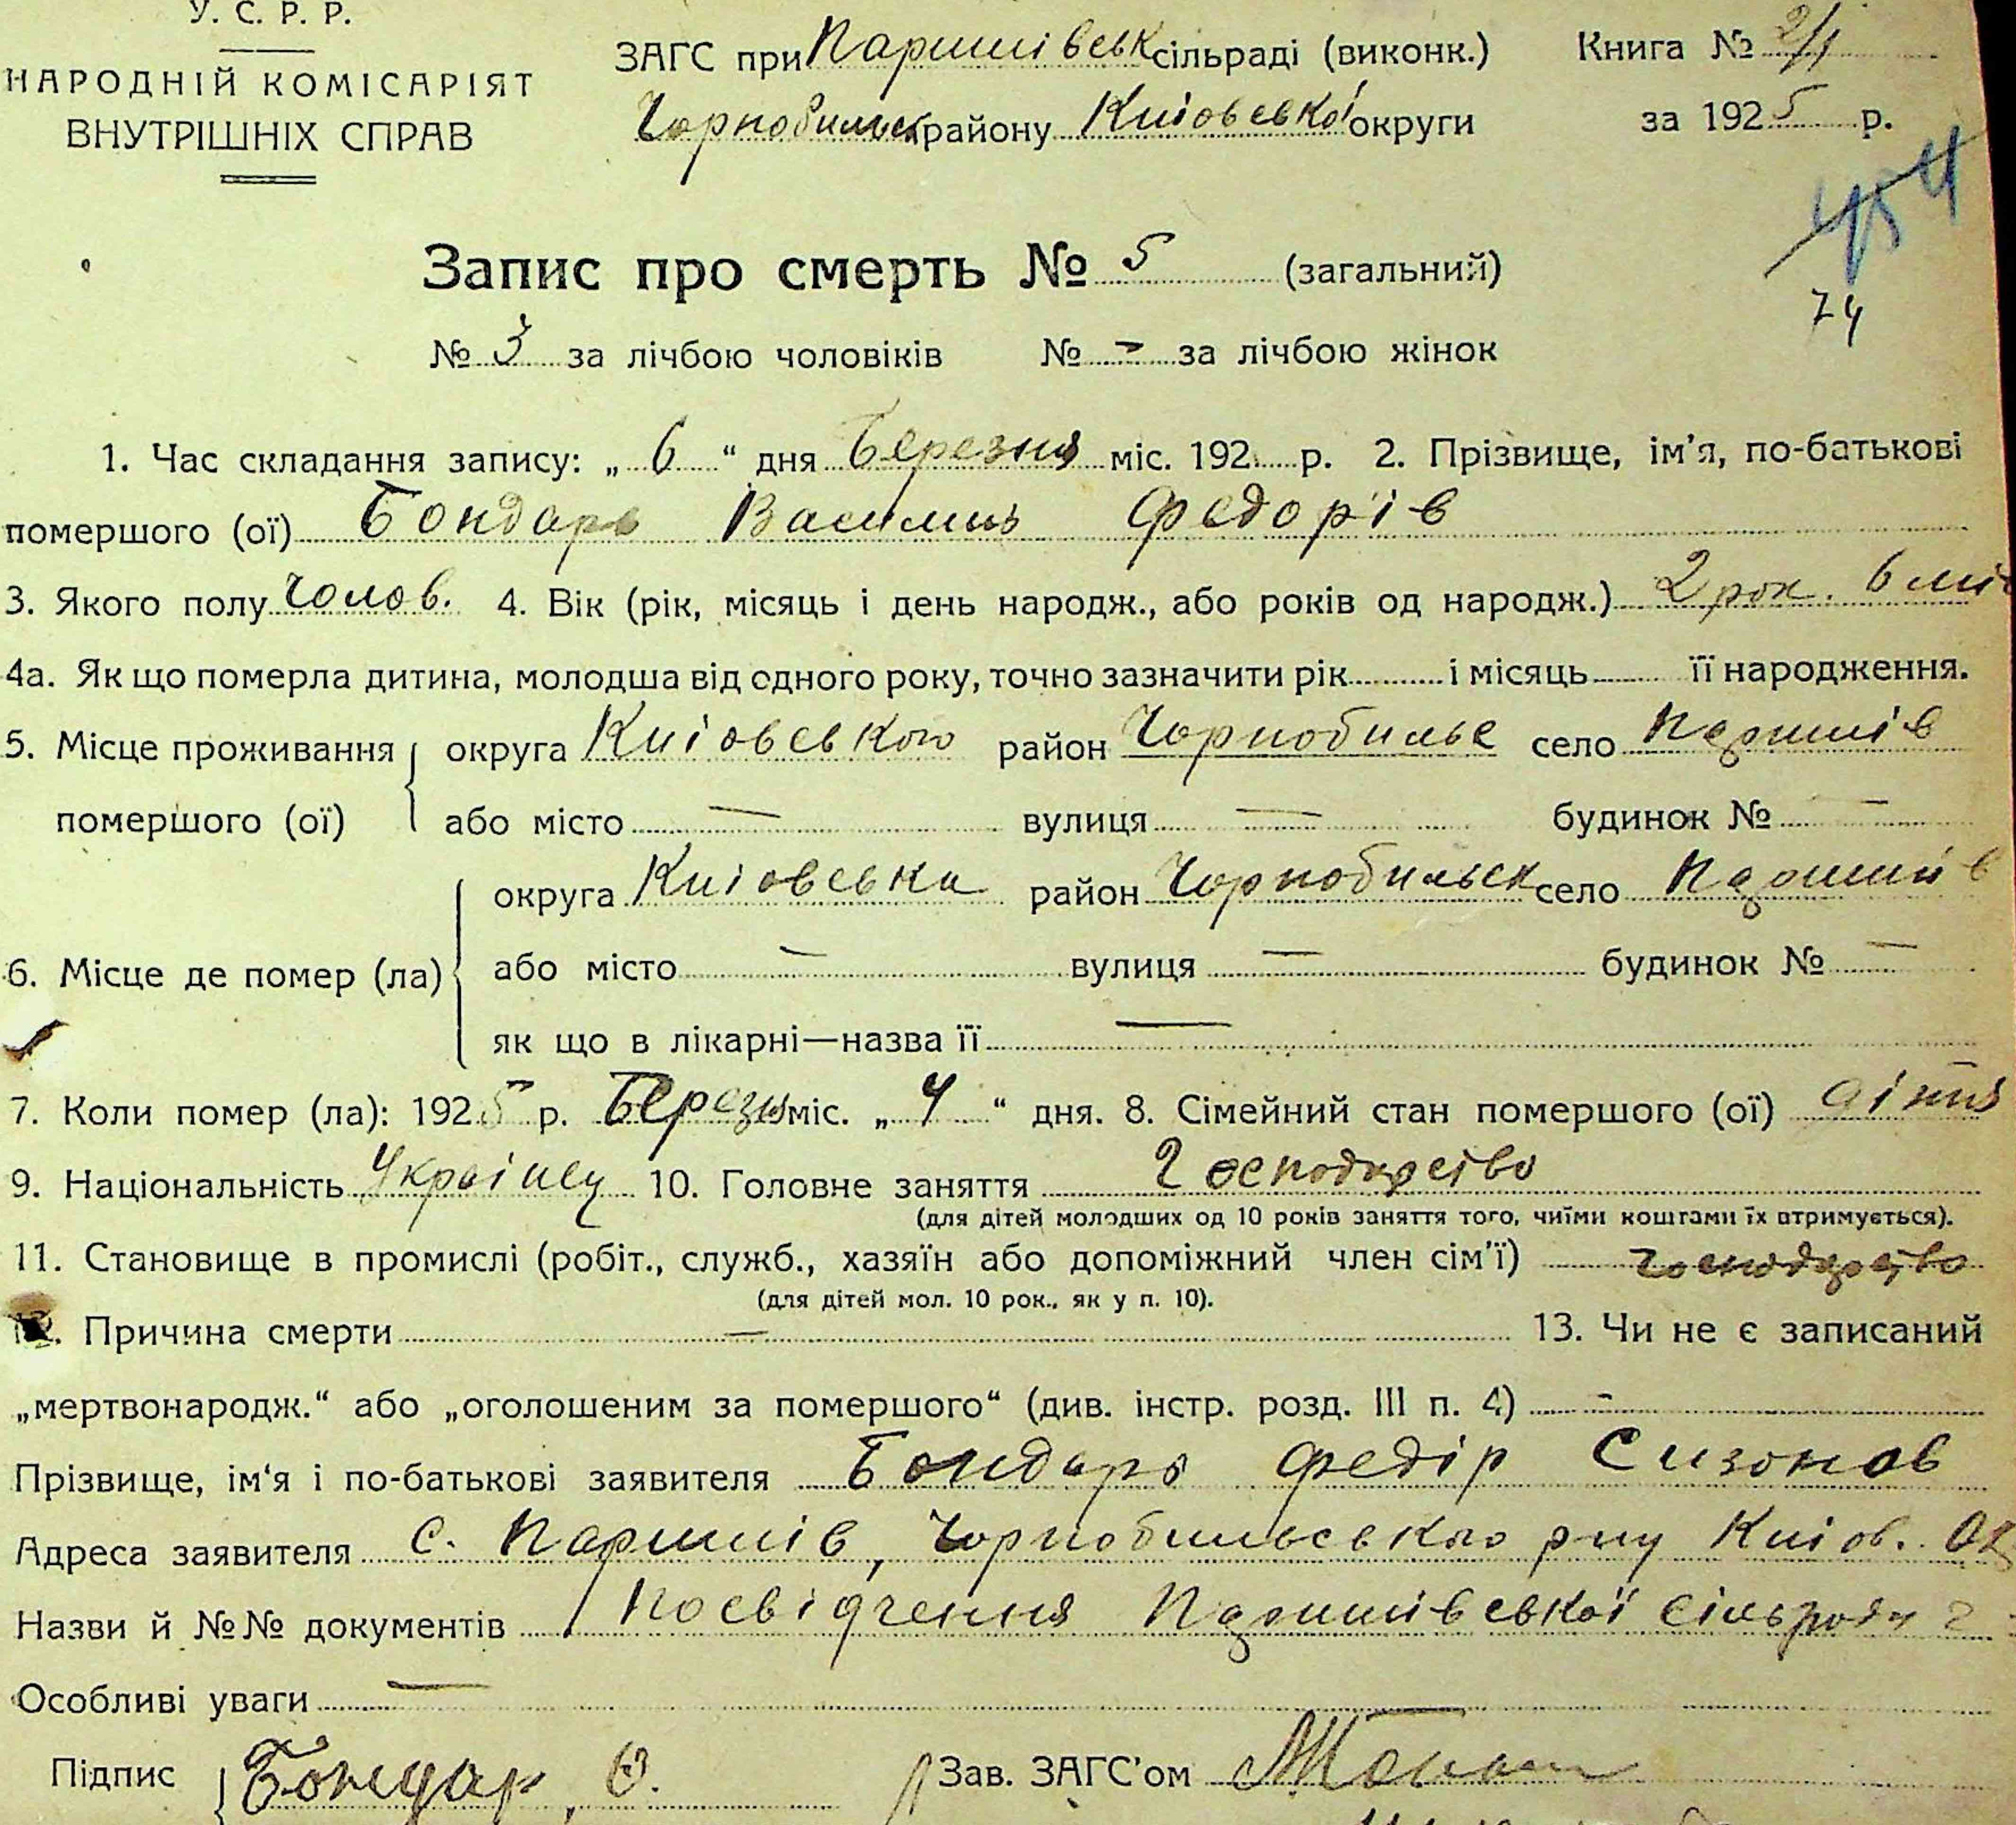 У. С. Р. Р.
НАРОДНІЙ КОМІСАРІЯТ
ВНУТРІШНІХ СПРАВ
ЗАГС при Паришівськ сільраді (виконк.)
Чорнобильск району Київської округи
Книга № 2/1
за 1925 р.
454
74
Запис про смерть № 5 (загальний)
№ 3 за лічбою чоловіків № – за лічбою жінок
1. Час складання запису: „ 6 “ дня Березня міс. 192 р. 2. Прізвище, ім'я, по-батькові
помершого (ої) Бондарь Василь Федорів
3. Якого полу Чолов. 4. Вік (рік, місяць і день народж., або років од народж.) 2 рок. 6 міс
4а. Як що померла дитина, молодша від одного року, точно зазначити рік і місяць її народження.
5. Місце проживання помершого (ої) округа Киіовського район Чорнобильс село Паришів
або місто — вулиця — будинок № —
6. Місце де помер (ла) округа Киіовська район Чорнобильск село Паришів
або місто — вулиця — будинок № —
як що в лікарні—назва її —
7. Коли помер (ла): 1925 р. Березня міс. „ 4 “ дня. 8. Сімейний стан помершого (ої)
9. Національність Украінец 10. Головне заняття Господарство
(для дітей молодших од 10 років заняття того, чиїми коштами їх втримується).
11. Становище в промислі (робіт., служб., хазяїн або допоміжний член сім'ї) господарство
(для дітей мол. 10 рок., як у п. 10).
12. Причина смерти — 13. Чи не є записаний
„мертвонародж.“ або „оголошеним за помершого“ (див. інстр. розд. III п. 4) -
Прізвище, ім'я і по-батькові заявителя Бондарь Федір Сизонов
Адреса заявителя с. Паришів, Чорнобильського р-ну Киіов. Ок
Назви й №№ документів Посвідчення Паришівськоі Сільради
Особливі уваги —
Підпис Бондар, Ѳ. Зав. ЗАГС'ом